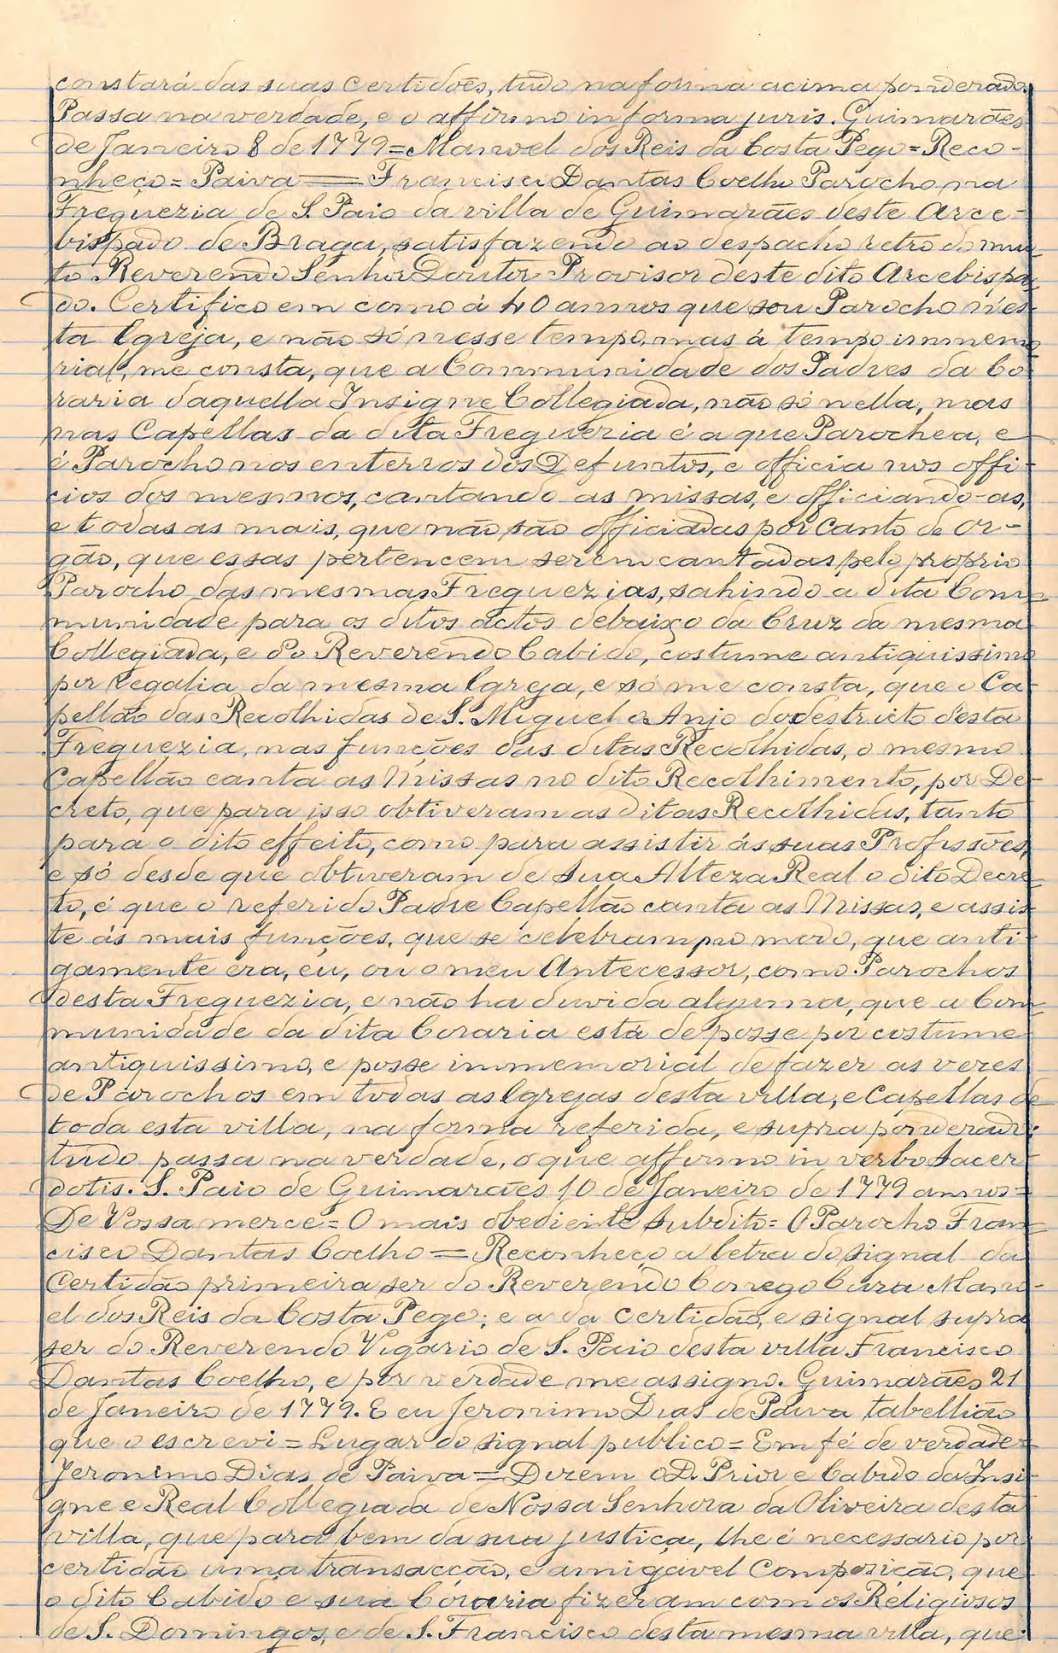 constará das suas certidões, tudo na forma acima ponderada.
Passa na verdade, e o affirmo in forma juris. Guimarães
de Janeiro 8 de 1779=Manoel dos Reis da Costa Pego=Reco-
nheço=Paiva=Francisco Dantas Coelho Parocho na
Freguezia de S. Paio da villa de Guimarães deste Arce-
bispado de Braga, satisfazendo ao despacho retro do mui
to Reverendo Senhor Doutor Provisor deste dito Arcebispa
do. Certifico em como á 40 annos que sou Parocho n'es-
ta Igreja, e não só nesse tempo, mas á tempo immemo
rial, me consta, que a Communidade dos Padres da Co
raria daquella Insigne Collegiada, não só nella, mas
nas Capellas da dita Freguezia é a que Parochea, e
é Parocho nos enterros dos Defuntos, e officia nos offi-
cios dos mesmos, cantando as missas, e officiando-as,
e todas as mais, que não são officiadas por Canto de Or-
gão, que essas pertencem serem cantadas pelo proprio
Parocho das mesmas Freguezias, sahindo a dita Com-
munidade para os ditos actos debaixo da Cruz da mesma
Collegiada, e do Reverendo Cabido, costume antiquissimo
por regalia da mesma Igreja, e só me consta, que o Ca-
pellão das Recolhidas de S. Miguel o Anjo do destricto d'esta
Freguezia, nas funcções das ditas Recolhidas, o mesmo
Capellão canta as Missas no dito Recolhimento, por De-
creto, que para isso obtiveram as ditas Recolhidas, tanto
para o dito effeito, como para assistir ás suas Profissões,
e só desde que obtiveram de Sua Alteza Real o dito Decre-
to, é que o referido Padre Capellão canta as Missas, e assis-
te ás mais funções, que se celebram pro modo, que anti-
gamente era, eu, ou o meu Antecessor, como Parochos
desta Freguezia, e não ha duvida alguma, que a Com-
munidade da dita Coraria está de posse por costume
antiquissimo, e posse immemorial de fazer as vezes
de Parochos em todas as Igrejas desta villa, e Capellas de
toda esta villa, na forma referida, e supra ponderada;
tudo passa na verdade, o que affirmo in verbo Sacer-
dotis. S. Paio de Guimarães 10 de Janeiro de 1779 annos=
De Vossa merce=O mais obediente Subdito=O Parocho Fran-
cisco Dantas Coelho=Reconheço a letra do signal da
Certidão primeira ser do Reverendo Conego Cura Mano-
el dos Reis da Costa Pego; e a da certidão, e signal supra
ser do Reverendo Vigario de S. Paio desta villa Francisco
Dantas Coelho, e por verdade me assigno. Guimarães 21
de Janeiro de 1779. E eu Jeronimo Dias de Paiva tabellião
que o escrevi=Lugar do signal publico=Em fé de verdade=
Jeronimo Dias de Paiva=Dizem o D. Prior e Cabido da Insi-
gne e Real Collegiada de Nossa Senhora da Oliveira desta
villa, que para bem da sua justiça, lhe é necessario por
certidão uma transacção, e amigavel Composição, que
o dito Cabido e sua Coraria fizeram com os Religiosos
de S. Domingos, e de S. Francisco desta mesma villa, que